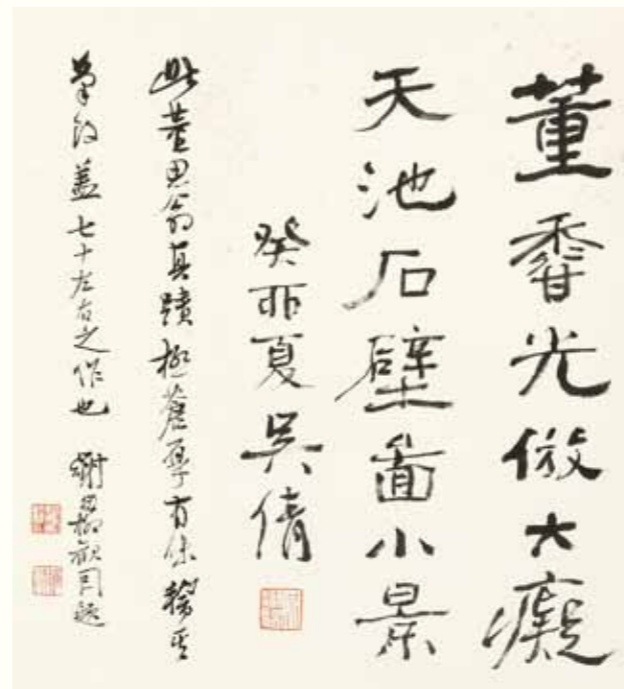 董香光倣大癡
天池石壁啚小景
癸丑夏吳倩
此董思翁真蹟極蒼厚有味
筆約蓋七十左右之作也 謝稚柳觀因題